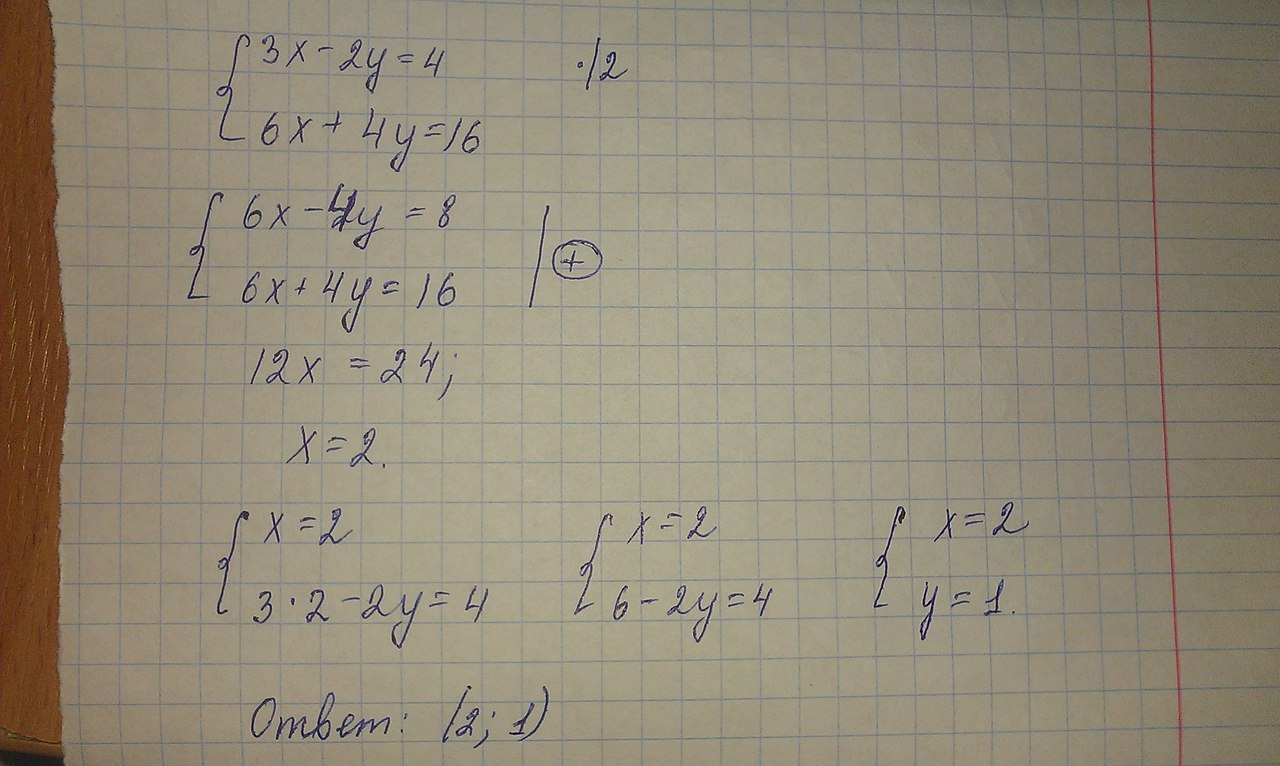 3x - 2y = 4 ·|2
6x + 4y = 16
6x - 4y = 8
6x + 4y = 16 | +
12x = 24;
x = 2.
x = 2 x = 2 x = 2
3·2 - 2y = 4 6 - 2y = 4 y = 1.
Ответ: (2; 1)